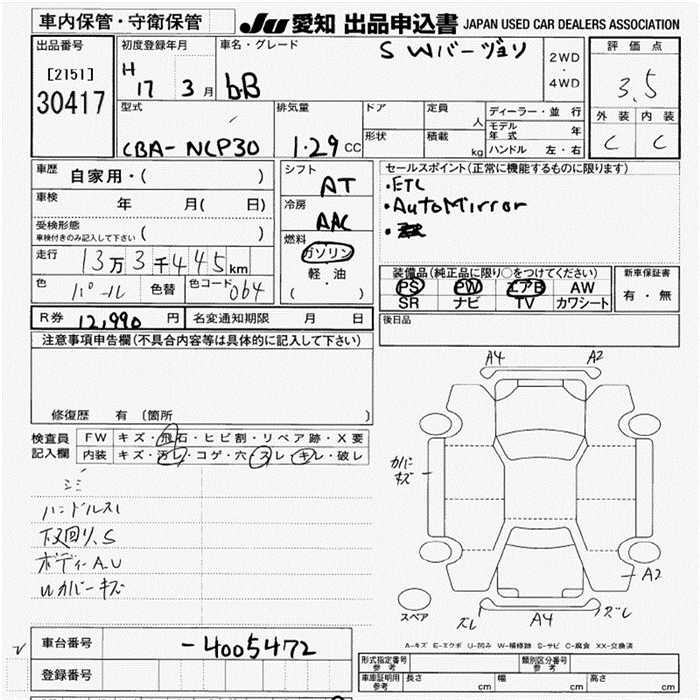 車内保管・守衛保管
JU 愛知 出品申込書 JAPAN USED CAR DEALERS ASSOCIATION
出品番号
[2151]
30417
初度登録年月
H 17 3 月
車名・グレード
S Wバージョン
bB
2WD
・
4WD
評価点
3.5
外装 内装
C C
型式
CBA- NCP30
排気量
1.29 CC
ドア
定員
人
形状
積載
kg
ディーラー・並行
モデル年式 年
ハンドル 左・右
車歴 自家用・( )
車検 年 月( 日)
受検形態
車検付きのみ記入して下さい ( )
走行 13万3千445km
色 パール 色替 色コード 064
シフト
AT
冷房
AAC
燃料
ガソリン
軽・油
( )
セールスポイント(正常に機能するものに限ります)
・ETC
・AutoMirror
・
装備品(純正品に限り○をつけてください)
PS PW エアB AW
SR ナビ TV カワシート
新車保証書
有・無
R券 12,990 円 名変通知期限 月 日
後日品
注意事項申告欄(不具合内容等は具体的に記入して下さい)
修復歴 有 〔箇所 〕
検査員記入欄
FW キズ・飛石・ヒビ割・リペア跡・X要
内装 キズ・汚レ・コゲ・穴・スレ・キレ・破レ
シミ
ハンドルスレ
下回り、S
ボディーA.U
Wカバーキズ
A4 A2
カバーキズ
A2
ズレ A4 ズレ
スペア
A-キズ E-エクボ U-凹み W-補修跡 S-サビ C-腐食 XX-交換済
車台番号 -4005472
登録番号
形式指定番号 参考
類別区分番号 参考
車庫証明用 参考 長さ cm 幅 cm 高さ cm